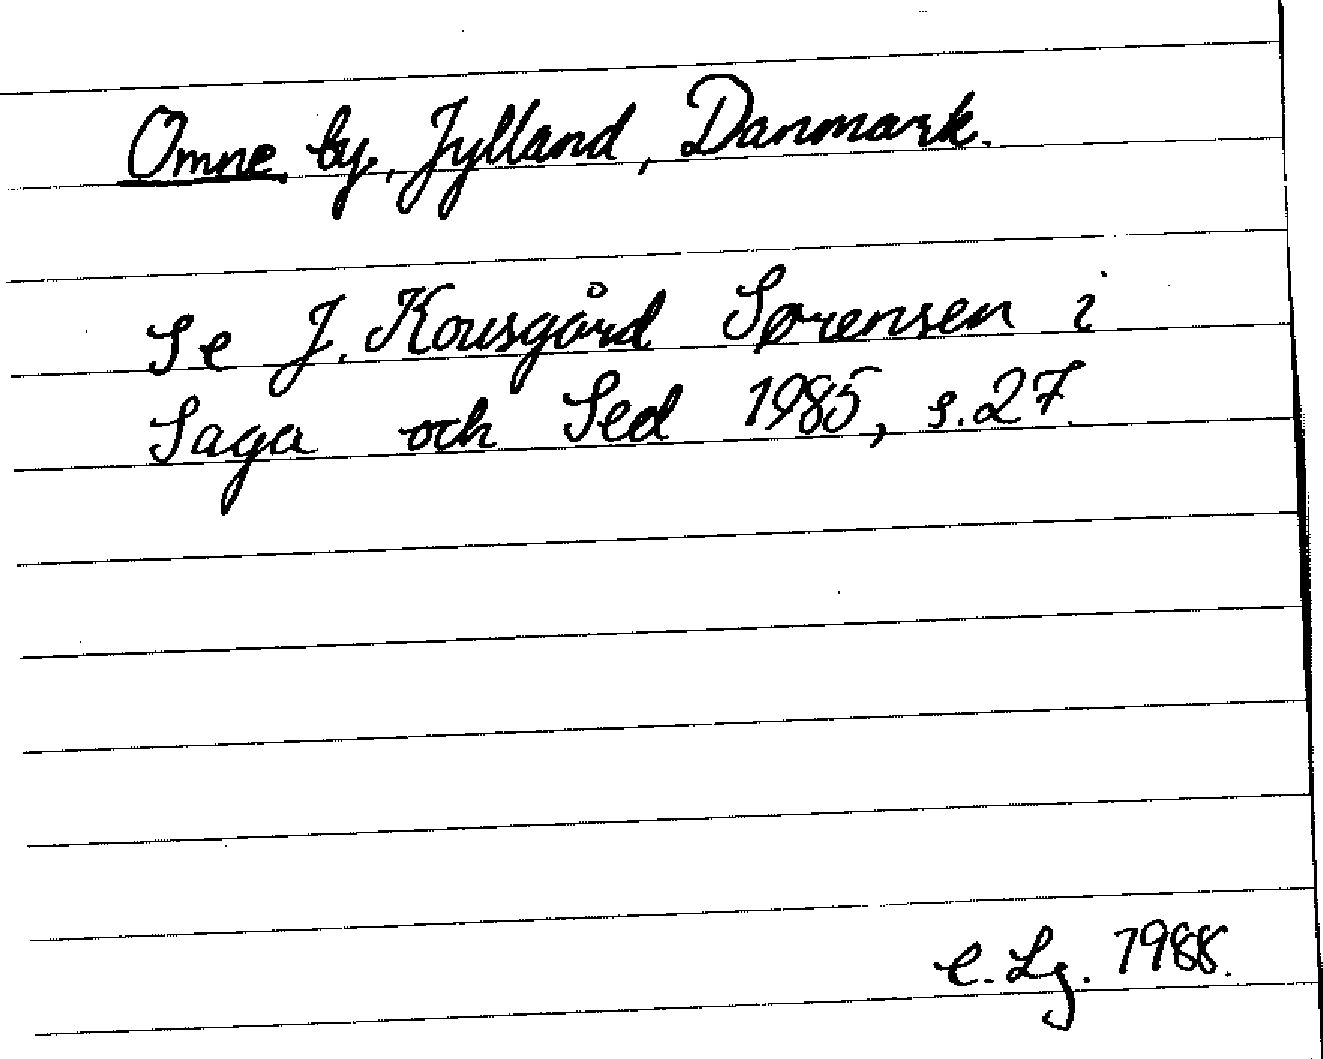 Omne by, Jylland, Danmark.
Se J. Kousgård Sørensen i
Saga och Sed 1985, s. 27.
C. Lg. 1988.